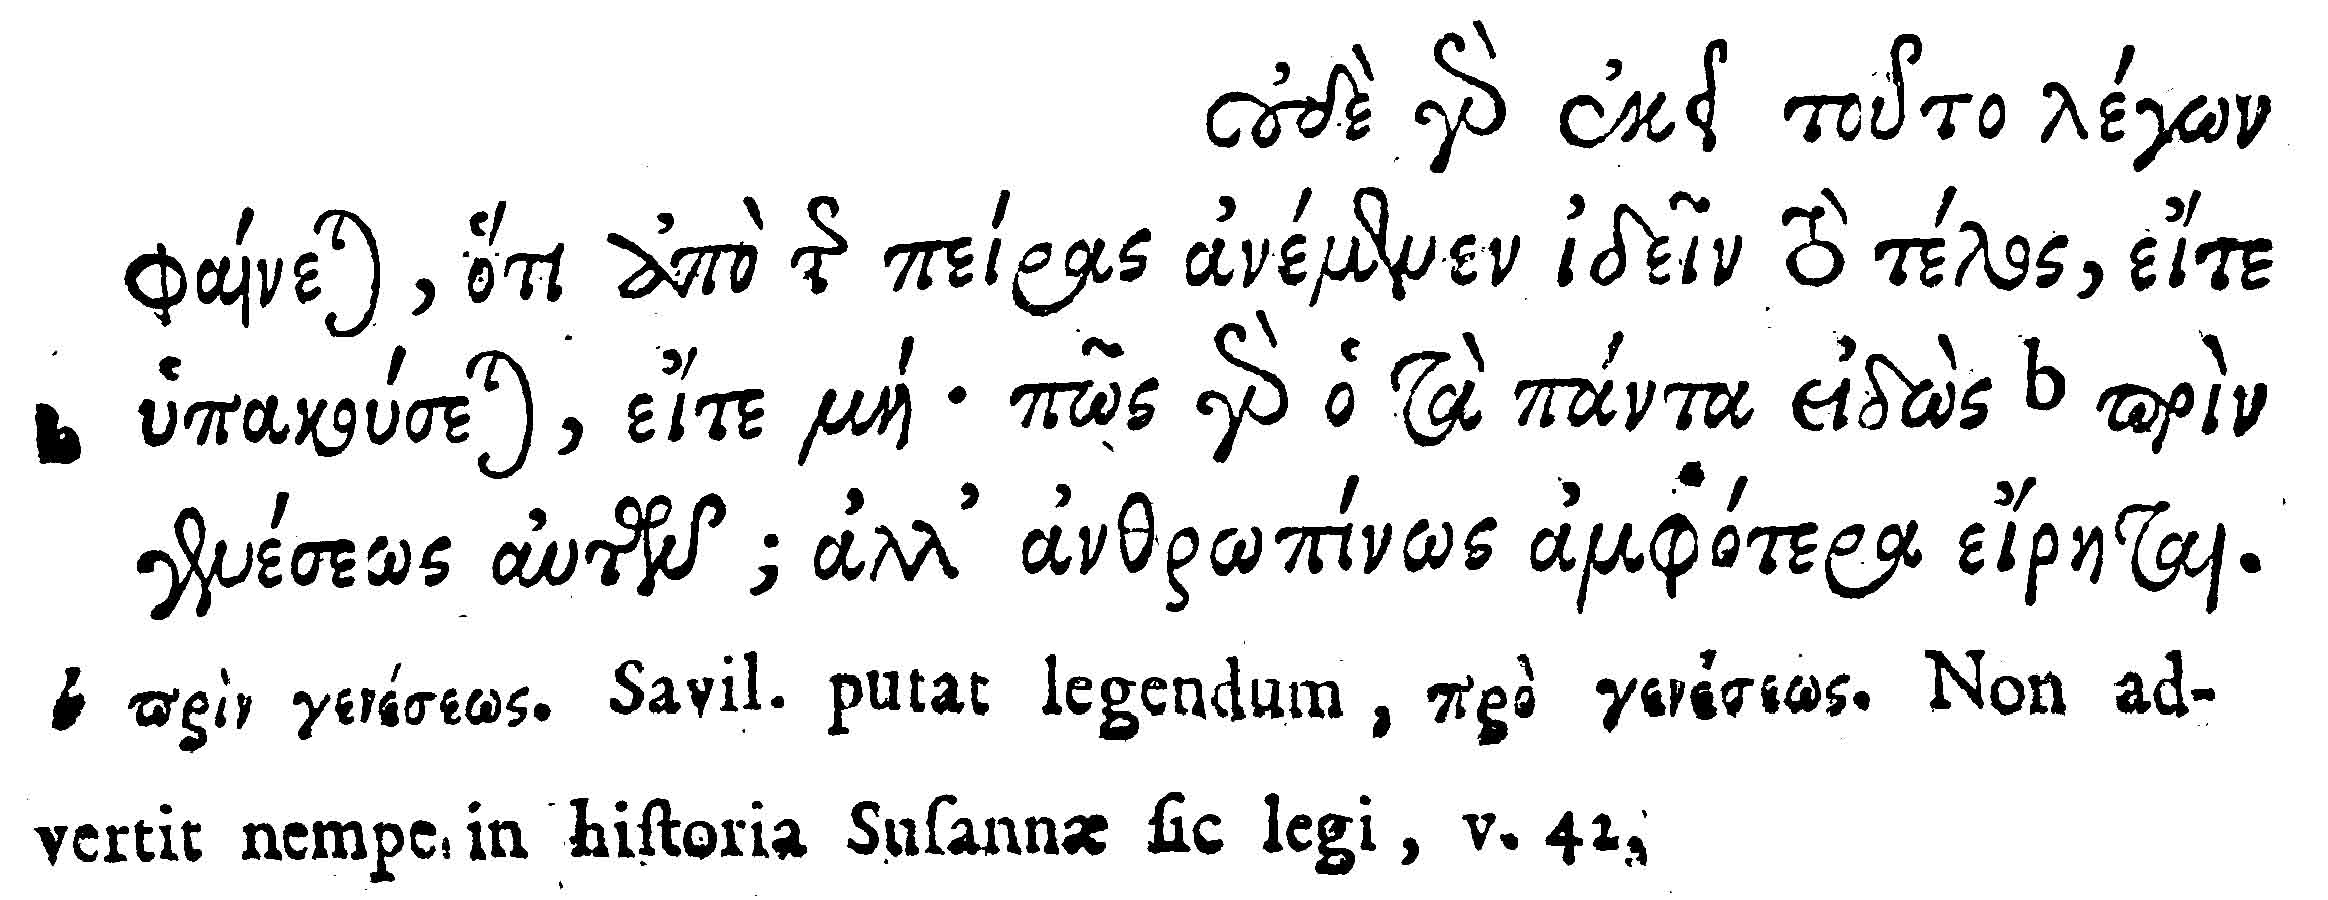 οὐδὲ γὰρ ἐκεῖ τοῦτο λέγων
φαίνεται, ὅτι ἀπὸ τῆς πείρας ἀνέμενεν ἰδεῖν τὸ τέλος, εἴτε
b ὑπακούσεται, εἴτε μή· πῶς γὰρ ὁ τὰ πάντα εἰδὼς b πρὶν
γενέσεως αὐτῶν; ἀλλ' ἀνθρωπίνως ἀμφότερα εἴρηται.
b πρὶν γενέσεως. Savil. putat legendum, πρὸ γενέσεως. Non ad-
vertit nempe in hiſtoria Suſannæ ſic legi, v. 42,